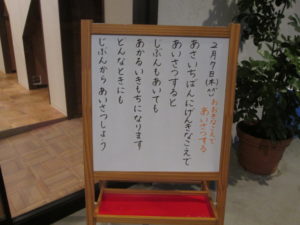 2月7日(木)めあて おおきなこえで
あいさつする
あさいちばんにげんきなこえで
あいさつすると
じぶんもあいても
あかるいきもちになります
どんなときにも
じぶんからあいさつしよう